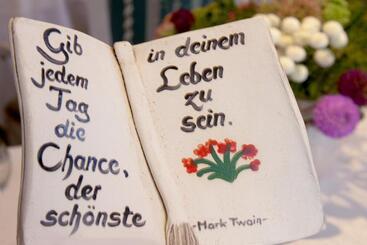 Gib
jedem
Tag
die
Chance,
der
schönste
in deinem
Leben
zu
sein.
-Mark Twain-